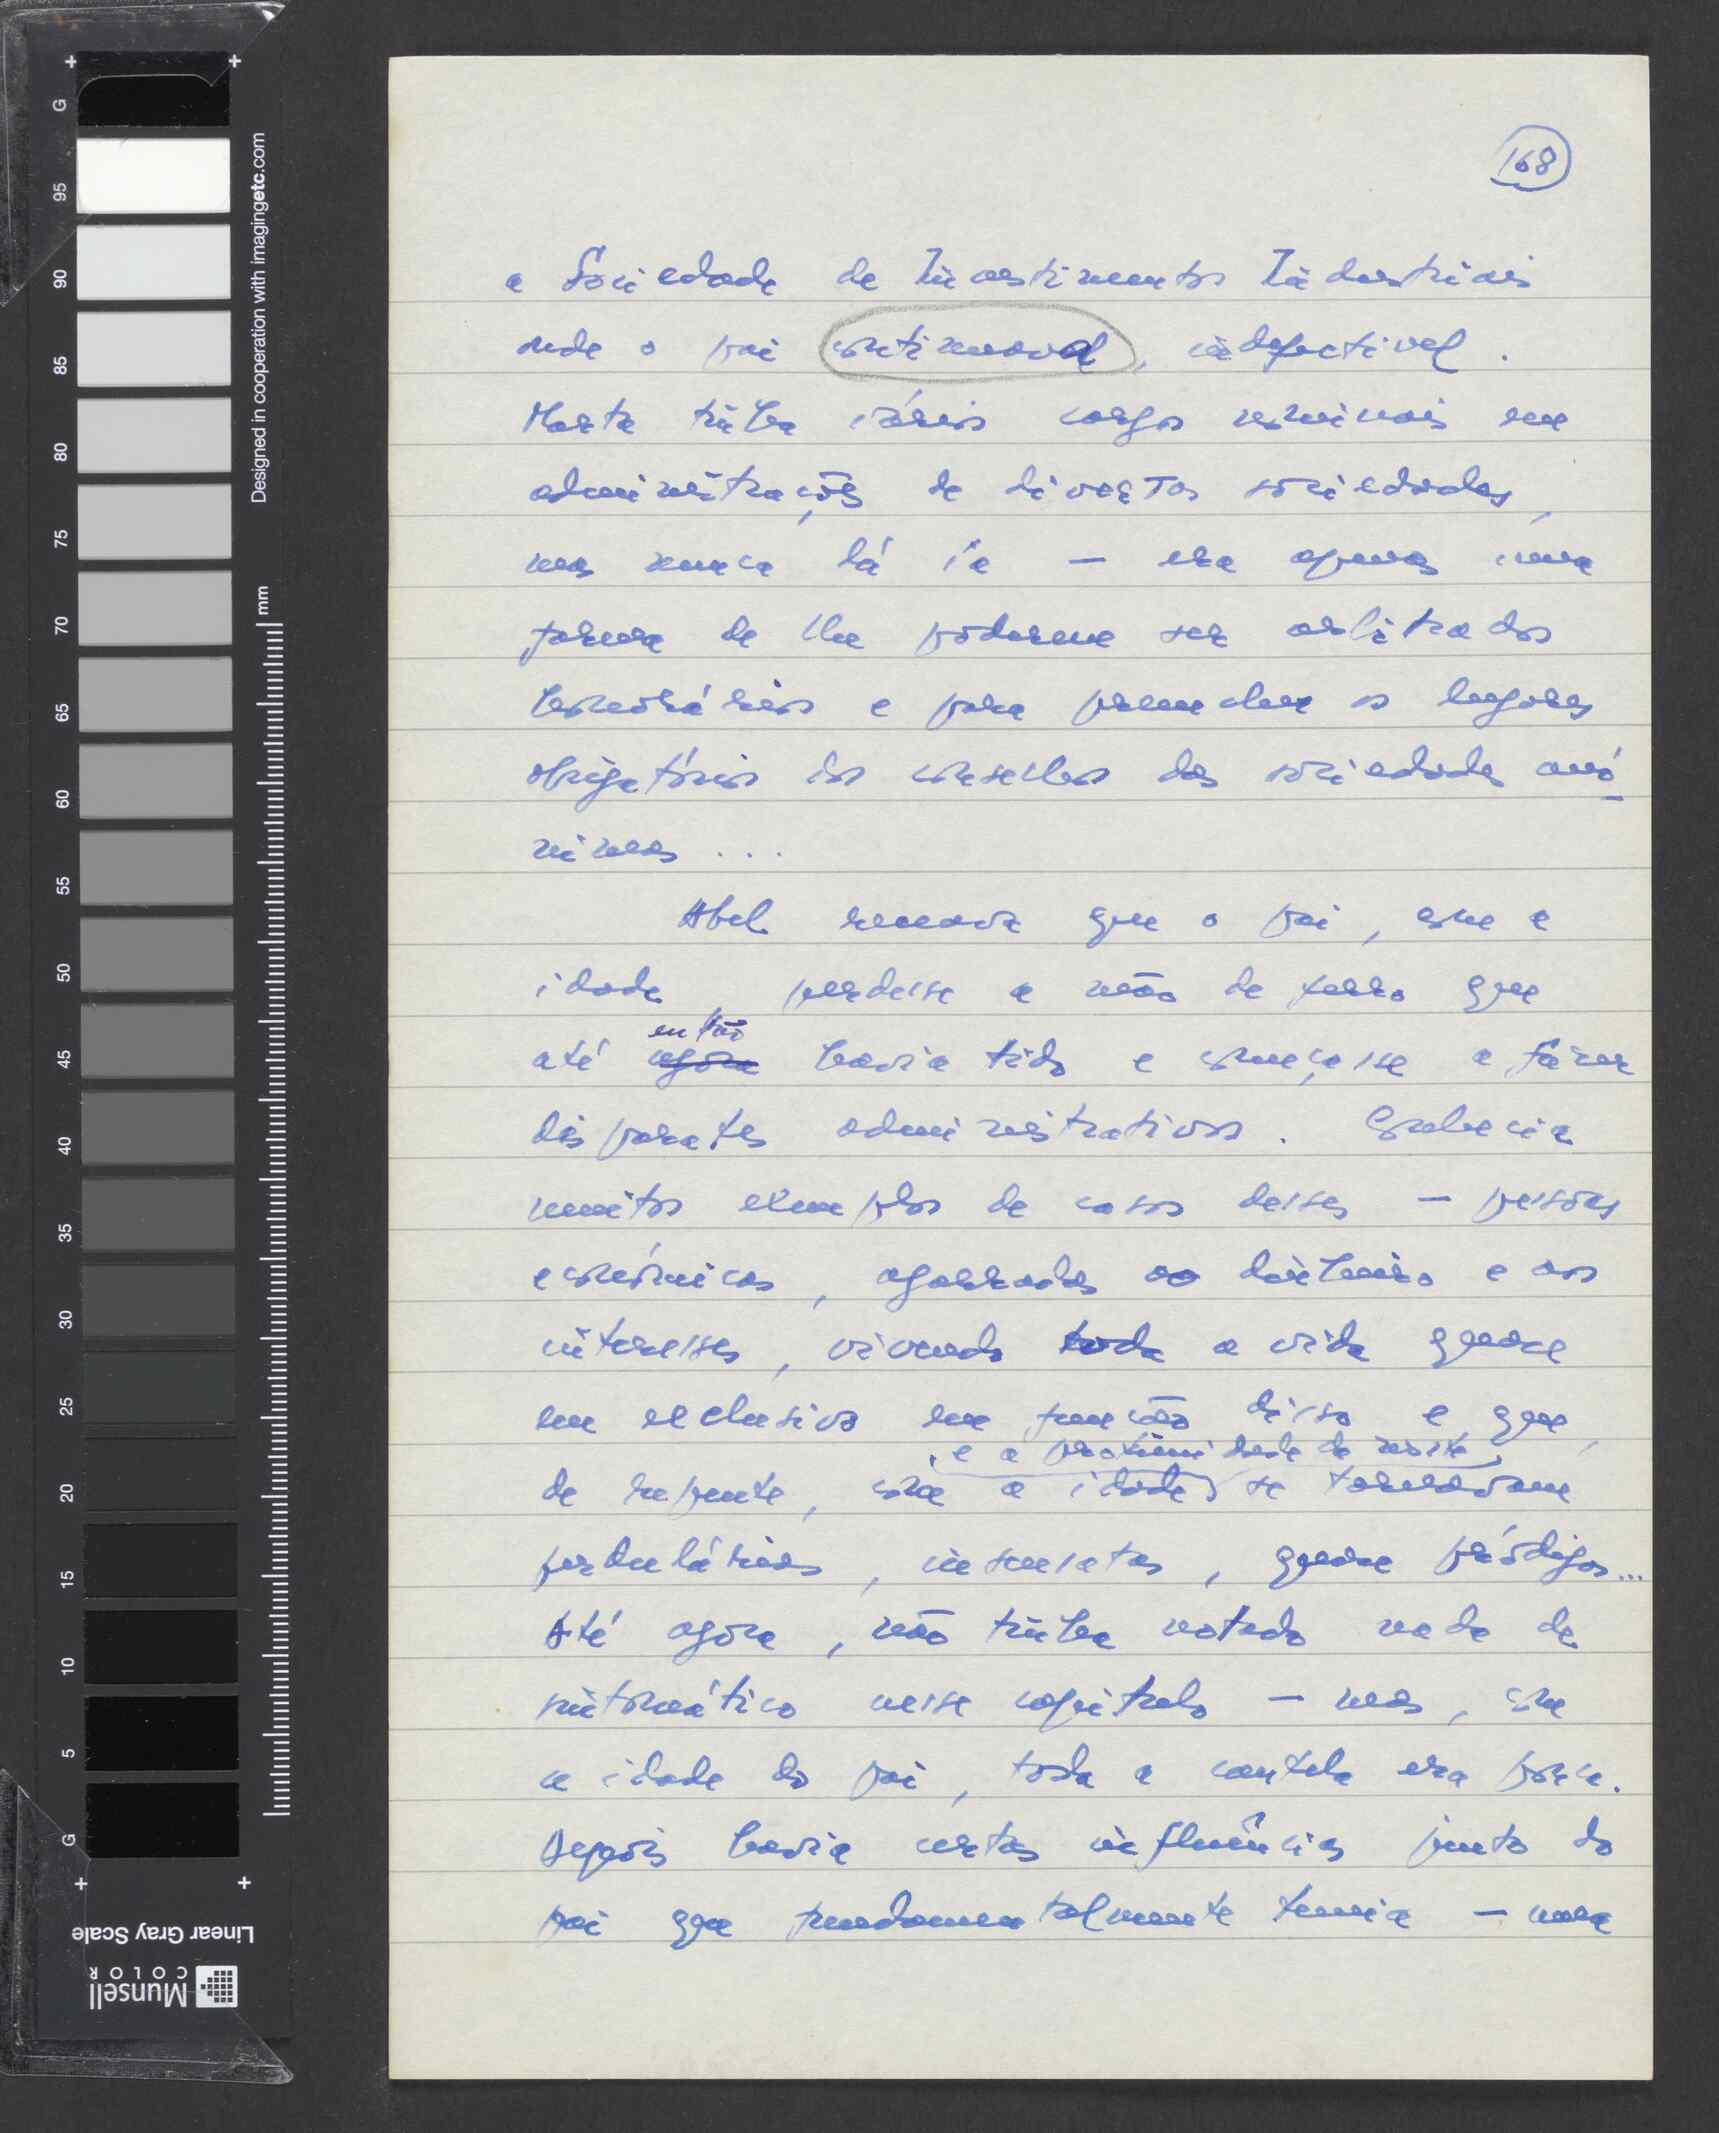 168
a Sociedade de Investimentos Industriais
onde o pai continuava, indefectivel.
Marta tinha vários cargos nominais em
administrações de diversas sociedades,
mas nunca lá ia — era apenas uma
forma de lhe poderem ser arbitrados
honorários e para preencher os lugares
obrigatórios dos conselhos das sociedades anó-
nimas ...
Abel receava que o pai, com a
idade, perdesse a mão de ferro que
então
até agora havia tido e começasse a fazer
disparates administrativos. Conhecia
muitos exemplos de casos desses — pessoas
económicas, agarradas ao dinheiro e aos
interesses, vivendo toda a vida quase
em exclusivo em função disso e que,
e a proximidade da morte,
de repente, com a idade se tornavam
perdulárias, insensatas, quase pródigas...
Até agora, não tinha notado nada de
sintomático nesse capítulo — mas, com
a idade do pai, toda a cautela era pouca.
Depois havia certas influências junto do
pai que fundamentalmente temia — uma
G
95
90
85
80
75
70
65
60
55
50
45
40
35
30
25
20
15
10
5
G
mm
Designed in cooperation with imagingetc.com
Linear Gray Scale
Munsell
COLOR